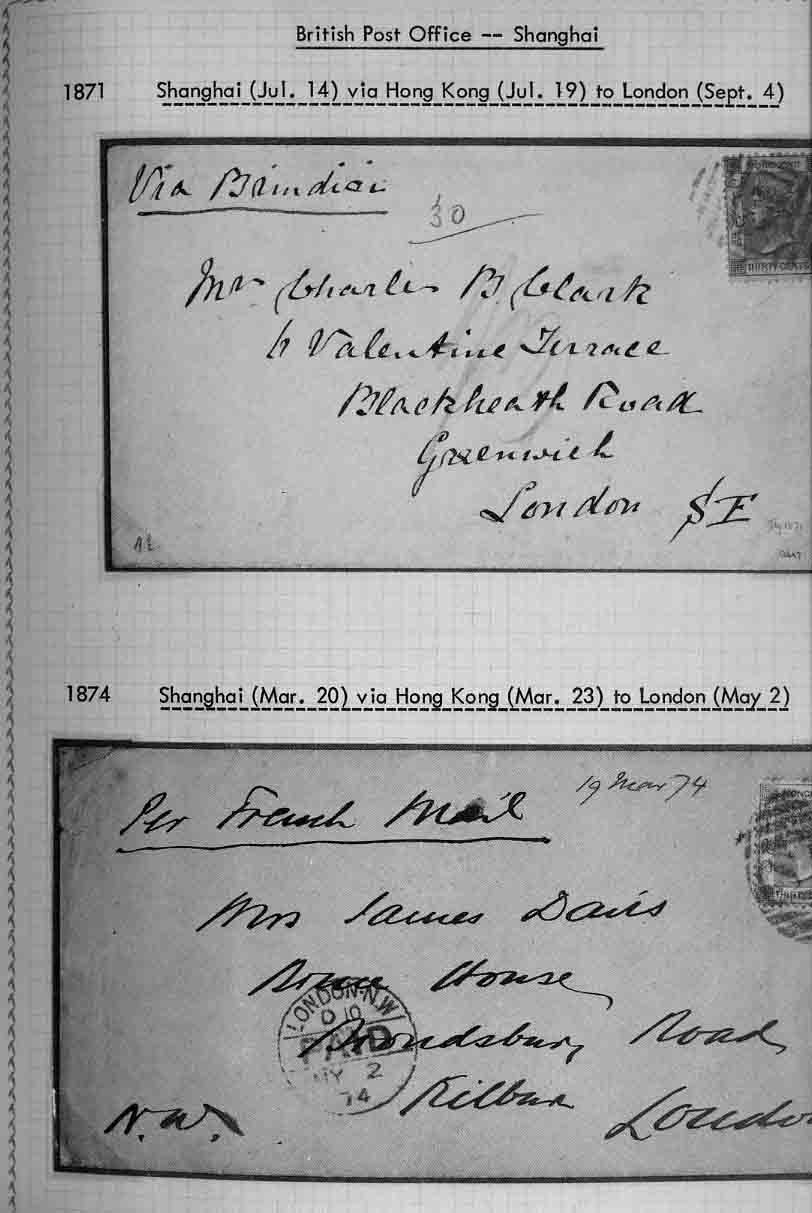 British Post Office -- Shanghai
1871 Shanghai (Jul. 14) via Hong Kong (Jul. 19) to London (Sept. 4)
Via Brindisi
30
THIRTY CENTS
Mr Charles B Clark
6 Valentine Terrace
Blackheath Road
Greenwich
London S E
1874 Shanghai (Mar. 20) via Hong Kong (Mar. 23) to London (May 2)
19 Mar 74
Per French Mail
Mrs James Davis
House
LONDON-N.W
PAID
MY 2
74
Brondsbury Road
Kilburn
N.W. London